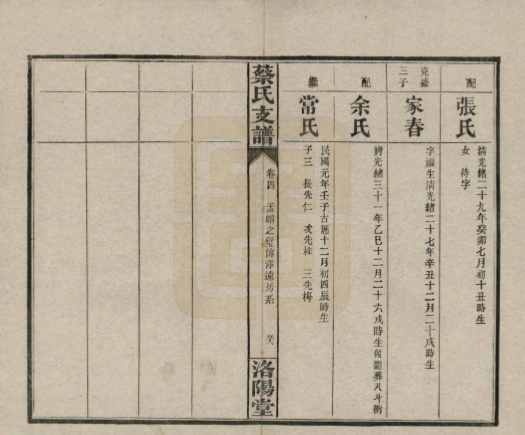 配
張氏
清光緒二十九年癸卯七月初十丑時生
女 待字
克盛
三子
家春
字福生清光緒二十七年辛丑十二月二十戌時生
配
余氏
清光緒三十一年乙巳十二月二十六戌時生後葬八斗衝
繼
常氏
民國元年壬子古曆十二月初四辰時生
子三 長先仁 次先柱 三先梅
蔡氏支譜
卷四
孟皞之璧傳澤遠房系
洛陽堂